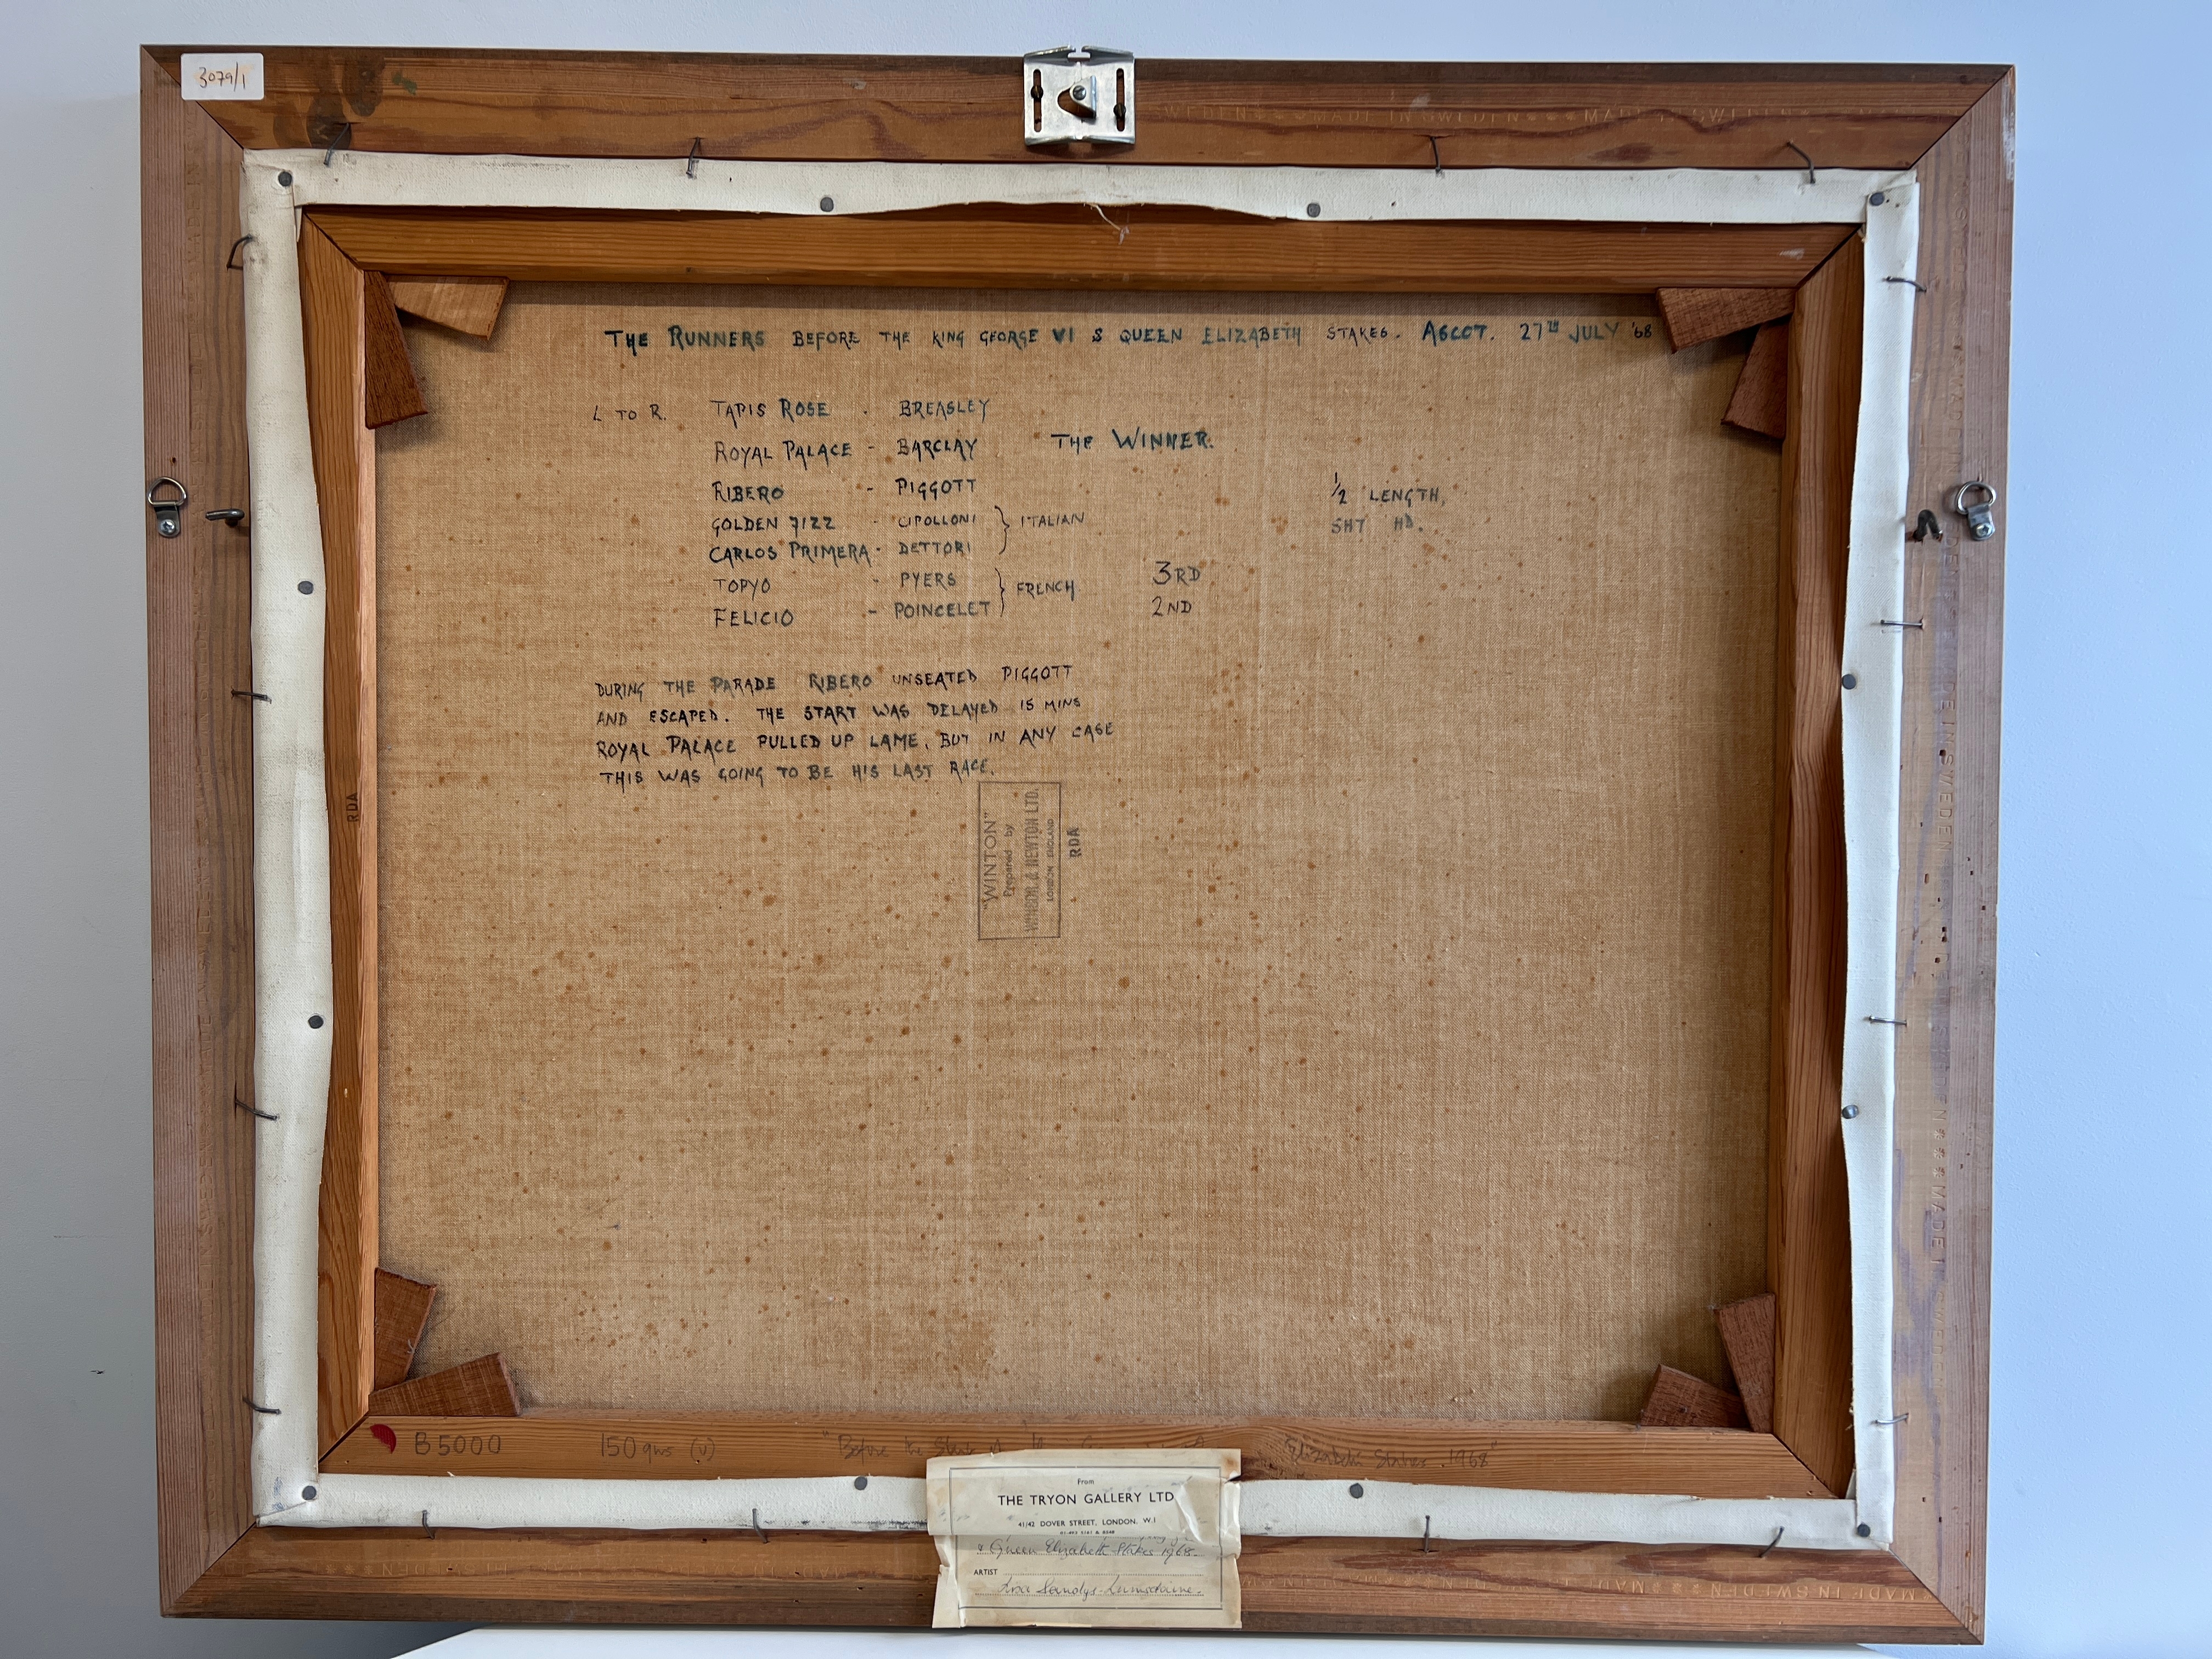 3079/1
WEDEN MADE IN SWEDEN MADE IN SWEDEN
THE RUNNERS BEFORE THE KING GEORGE VI & QUEEN ELIZABETH STAKES. ASCOT. 27TH JULY '68
L TO R. TAPIS ROSE - BREASLEY
ROYAL PALACE - BARCLAY THE WINNER.
RIBERO - PIGGOTT ½ LENGTH,
GOLDEN FIZZ - CIPOLLONI } ITALIAN SHT HD.
CARLOS PRIMERA - DETTORI
TOPYO - PYERS } FRENCH 3RD
FELICIO - POINCELET 2ND
DURING THE PARADE RIBERO UNSEATED PIGGOTT
AND ESCAPED. THE START WAS DELAYED 15 MINS
ROYAL PALACE PULLED UP LAME, BUT IN ANY CASE
THIS WAS GOING TO BE HIS LAST RACE.
RDA
"WINTON"
Prepared by
WINSOR & NEWTON LTD.
LONDON ENGLAND
RDA
MADE IN SWEDEN
B5000 150 gns (v) "Before the Start Elizabeth Stakes. 1968"
From
THE TRYON GALLERY LTD
41/42 DOVER STREET, LONDON, W.1
& Queen Elizabeth Stakes 1968.
ARTIST
Sandys-Lumsdaine.
MADE IN SWEDEN